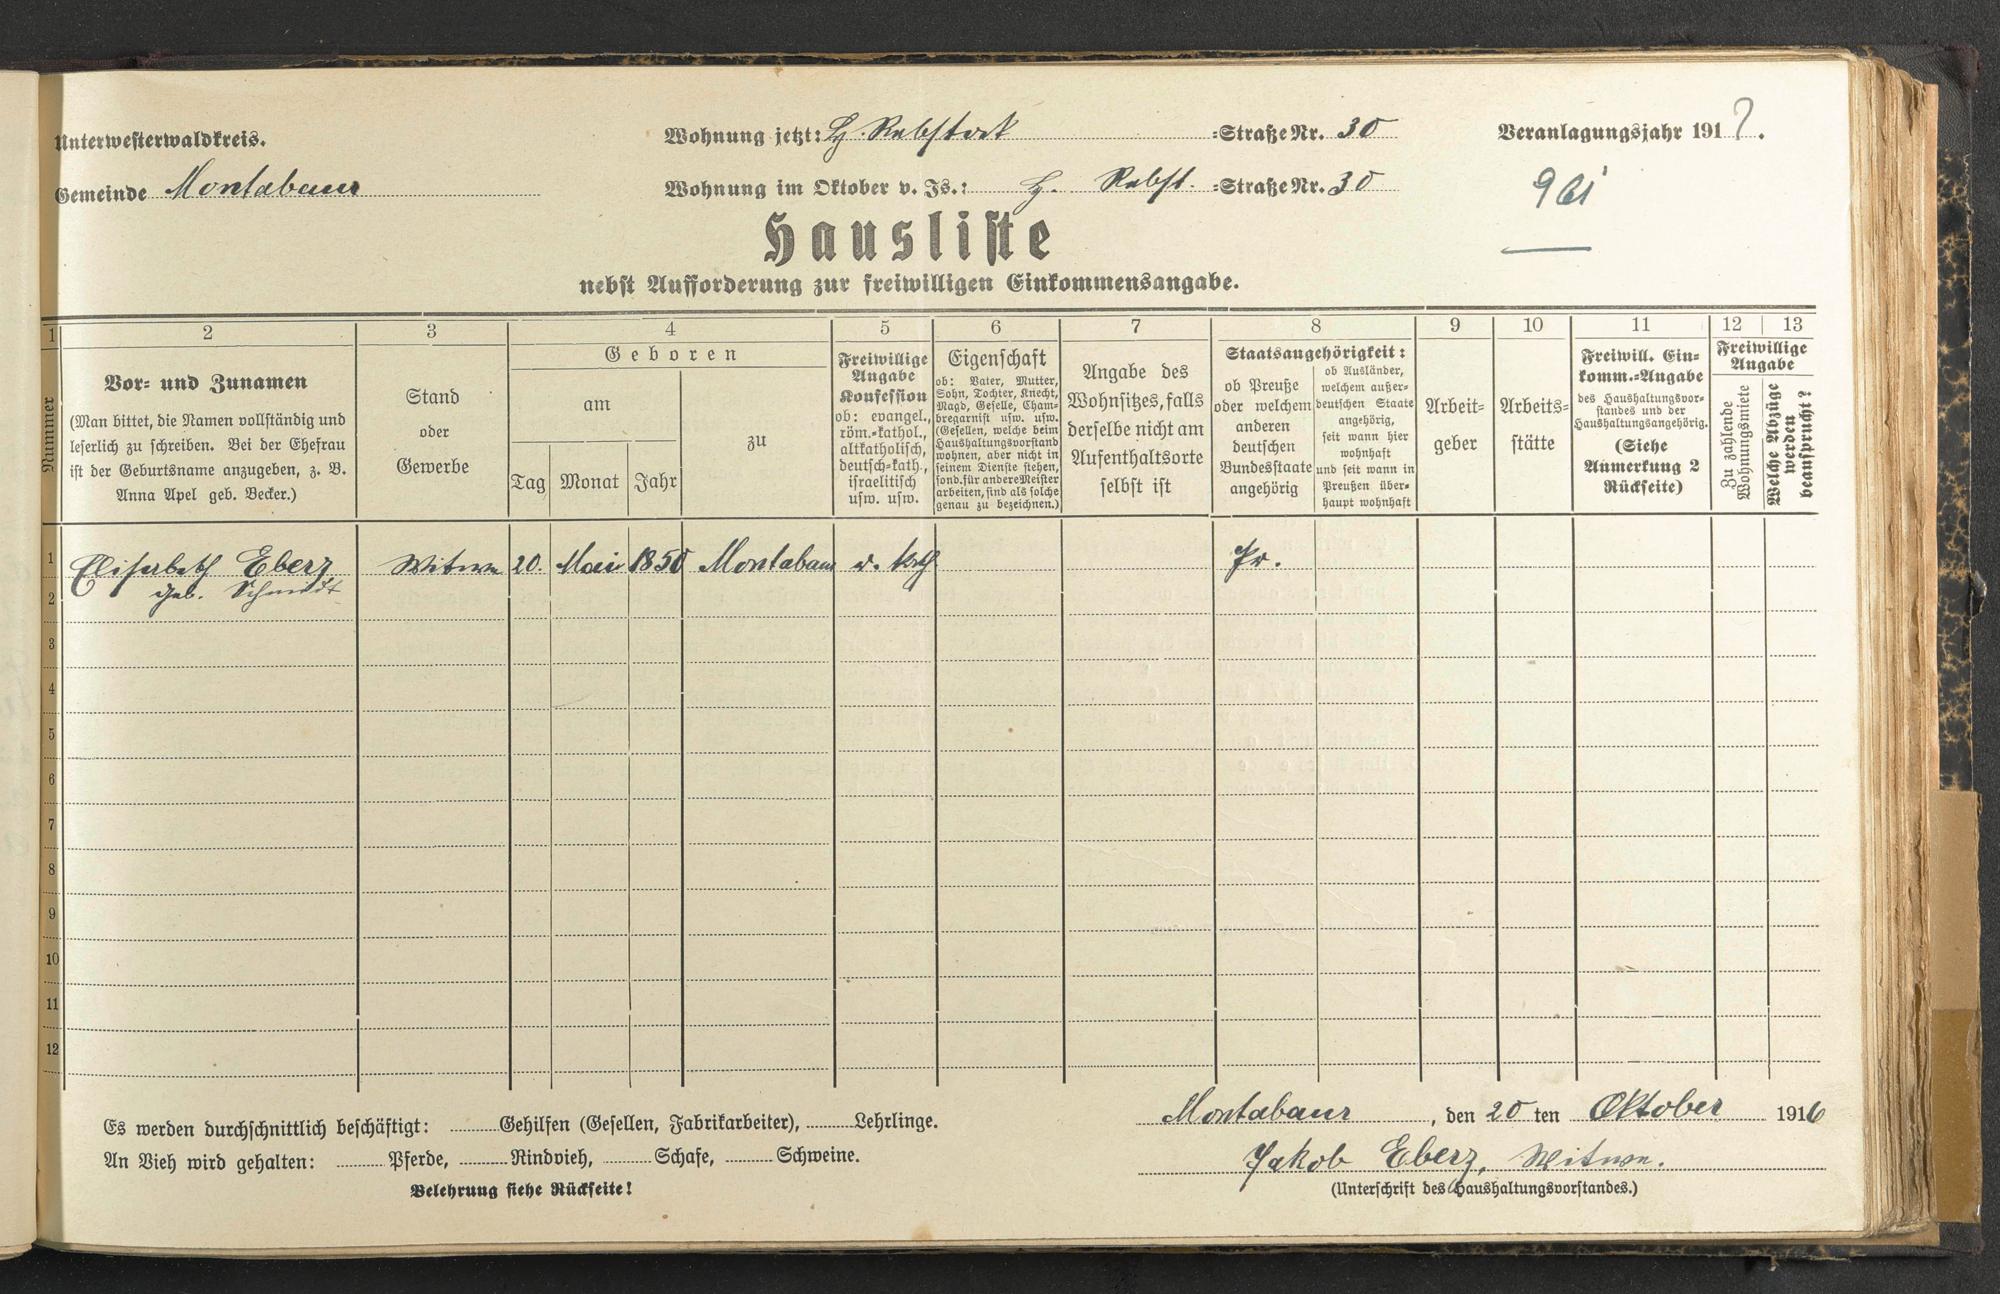 Unterwesterwaldkreis.
Wohnung jetzt: H. Rebstock =Straße Nr. 30
Veranlagungsjahr 1917.
Gemeinde Montabaur
Wohnung im Oktober v. Js.: H. Rebst. =Straße Nr. 30
Hausliste
nebst Aufforderung zur freiwilligen Einkommensangabe.
1 2 3 4 5 6 7 8 9 10 11 12 13
Nummer
Vor= und Zunamen
(Man bittet, die Namen vollständig und
leserlich zu schreiben. Bei der Ehefrau
ist der Geburtsname anzugeben, z. B.
Anna Apel geb. Becker.)
Stand
oder
Gewerbe
Geboren
am
zu
Tag Monat Jahr
Freiwillige
Angabe
Konfession
ob: evangel.,
röm.=kathol.,
altkatholisch,
deutsch=kath.,
israelitisch
usw. usw.
Eigenschaft
ob: Vater, Mutter,
Sohn, Tochter, Knecht,
Magd, Geselle, Cham=
bregarnist usw. usw.
(Gesellen, welche beim
Haushaltungsvorstand
wohnen, aber nicht in
seinem Dienste stehen,
sond. für andere Meister
arbeiten, sind als solche
genau zu bezeichnen.)
Angabe des
Wohnsitzes, falls
derselbe nicht am
Aufenthaltsorte
selbst ist
Staatsangehörigkeit:
ob Preuße
oder welchem
anderen
deutschen
Bundesstaate
angehörig
ob Ausländer,
welchem außer=
deutschen Staate
angehörig,
seit wann hier
wohnhaft
und seit wann in
Preußen über=
haupt wohnhaft
Arbeit=
geber
Arbeits=
stätte
Freiwill. Ein=
komm.=Angabe
des Haushaltungsvor=
standes und der
Haushaltungsangehörig.
(Siehe
Anmerkung 2
Rückseite)
Freiwillige
Angabe
Zu zahlende
Wohnungsmiete
Welche Abzüge
werden
beansprucht?
1 Elisabeth Eberz Witwe 20. Mai 1850 Montabaur r. kath Pr.
2 geb. Schmidt
3
4
5
6
7
8
9
10
11
12
Es werden durchschnittlich beschäftigt: Gehilfen (Gesellen, Fabrikarbeiter), Lehrlinge.
An Vieh wird gehalten: Pferde, Rindvieh, Schafe, Schweine.
Belehrung siehe Rückseite!
Montabaur, den 20 ten Oktober 1916
Jakob Eberz, Witwe.
(Unterschrift des Haushaltungsvorstandes.)